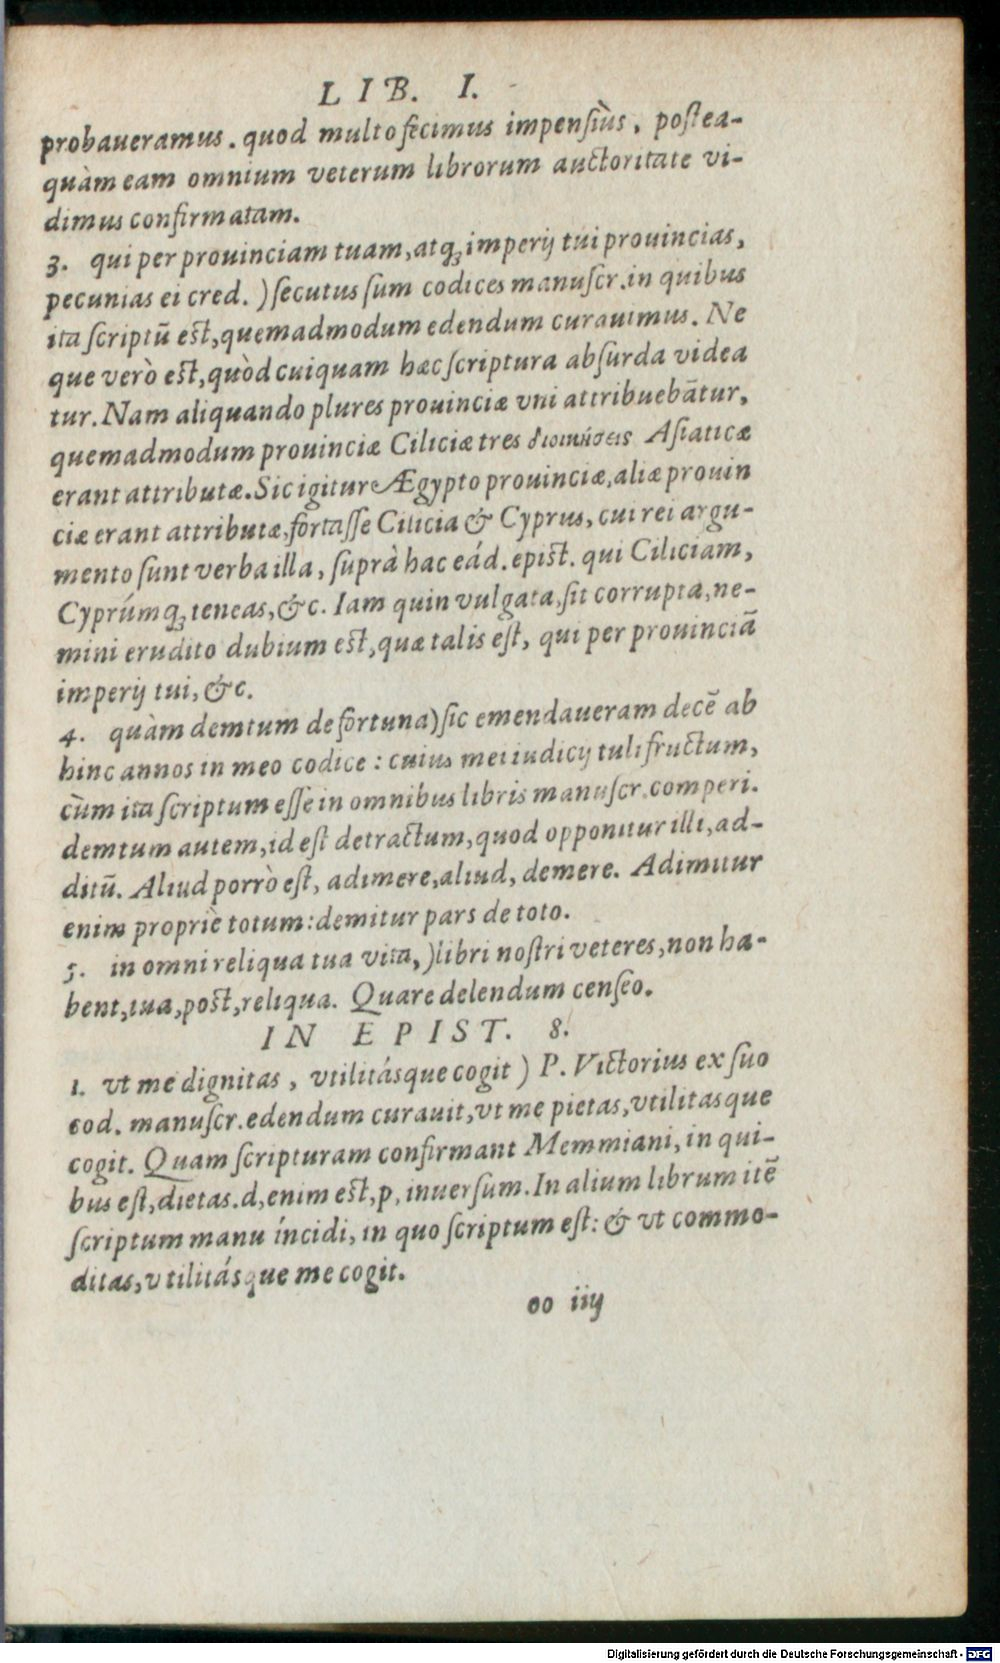 LIB. I.
probaueramus. quod multo fecimus impensiùs, postea-
quàm eam omnium veterum librorum auctoritate vi-
dimus confirmatam.
3. qui per prouinciam tuam, atq; imperij tui prouincias,
pecunias ei cred.) secutus sum codices manuscr. in quibus
ita scriptū est, quemadmodum edendum curauimus. Ne
que verò est, quòd cuiquam hæc scriptura absurda videa
tur. Nam aliquando plures prouinciæ vni attribuebātur,
quemadmodum prouinciæ Ciliciæ tres διοικήσεις Asiaticæ
erant attributæ. Sic igitur Ægypto prouinciæ, aliæ prouin
ciæ erant attributæ, fortasse Cilicia & Cyprus, cui rei argu-
mento sunt verba illa, suprà hac eád. epist. qui Ciliciam,
Cyprúmq; teneas, &c. Iam quin vulgata, sit corrupta, ne-
mini erudito dubium est, quæ talis est, qui per prouinciā
imperij tui, &c.
4. quàm demtum de fortuna) sic emendaueram decē ab
hinc annos in meo codice: cuius mei iudicij tuli fructum,
cùm ita scriptum esse in omnibus libris manuscr. comperi.
demtum autem, id est detractum, quod opponitur illi, ad-
ditū. Aliud porrò est, adimere, aliud, demere. Adimitur
enim propriè totum: demitur pars de toto.
5. in omni reliqua tua vita,) libri nostri veteres, non ha-
bent, tua, post, reliqua. Quare delendum censeo.
IN EPIST. 8.
1. vt me dignitas, vtilitásque cogit) P. Victorius ex suo
cod. manuscr. edendum curauit, vt me pietas, vtilitasque
cogit. Quam scripturam confirmant Memmiani, in qui-
bus est, dietas. d, enim est, p, inuersum. In alium librum itē
scriptum manu íncidi, in quo scriptum est: & vt commo-
ditas, vtilitásque me cogit.
oo iiij
Digitalisierung gefördert durch die Deutsche Forschungsgemeinschaft - DFG